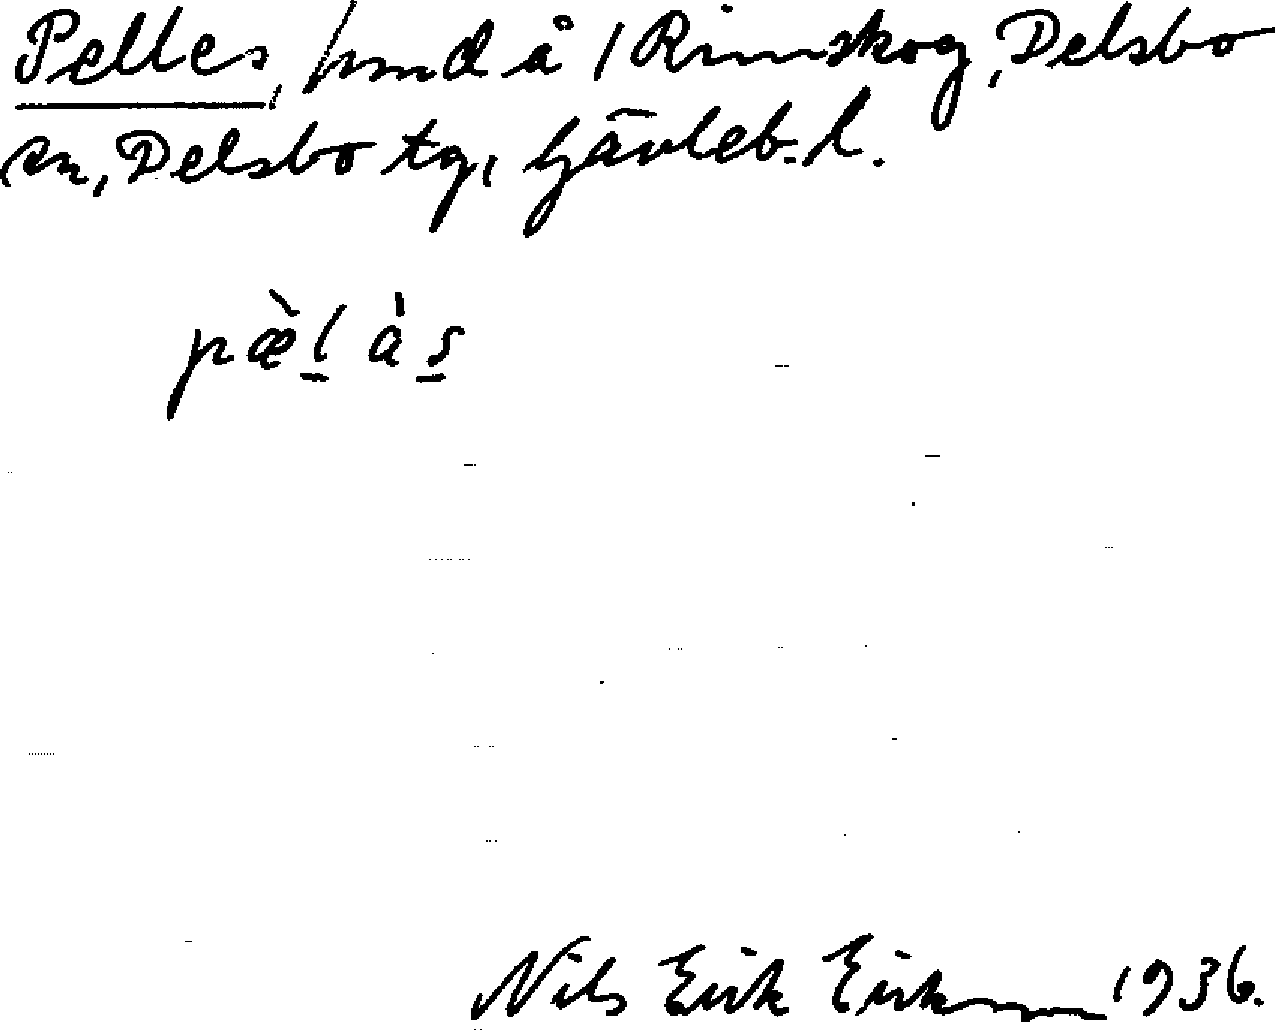 Pelles, hmd å 1 Rimskog, Delsbo
sn, Delsbo tg, Gävleb. l.
pæ̀l̠ às̠
Nils Erik Eriksson 1936.